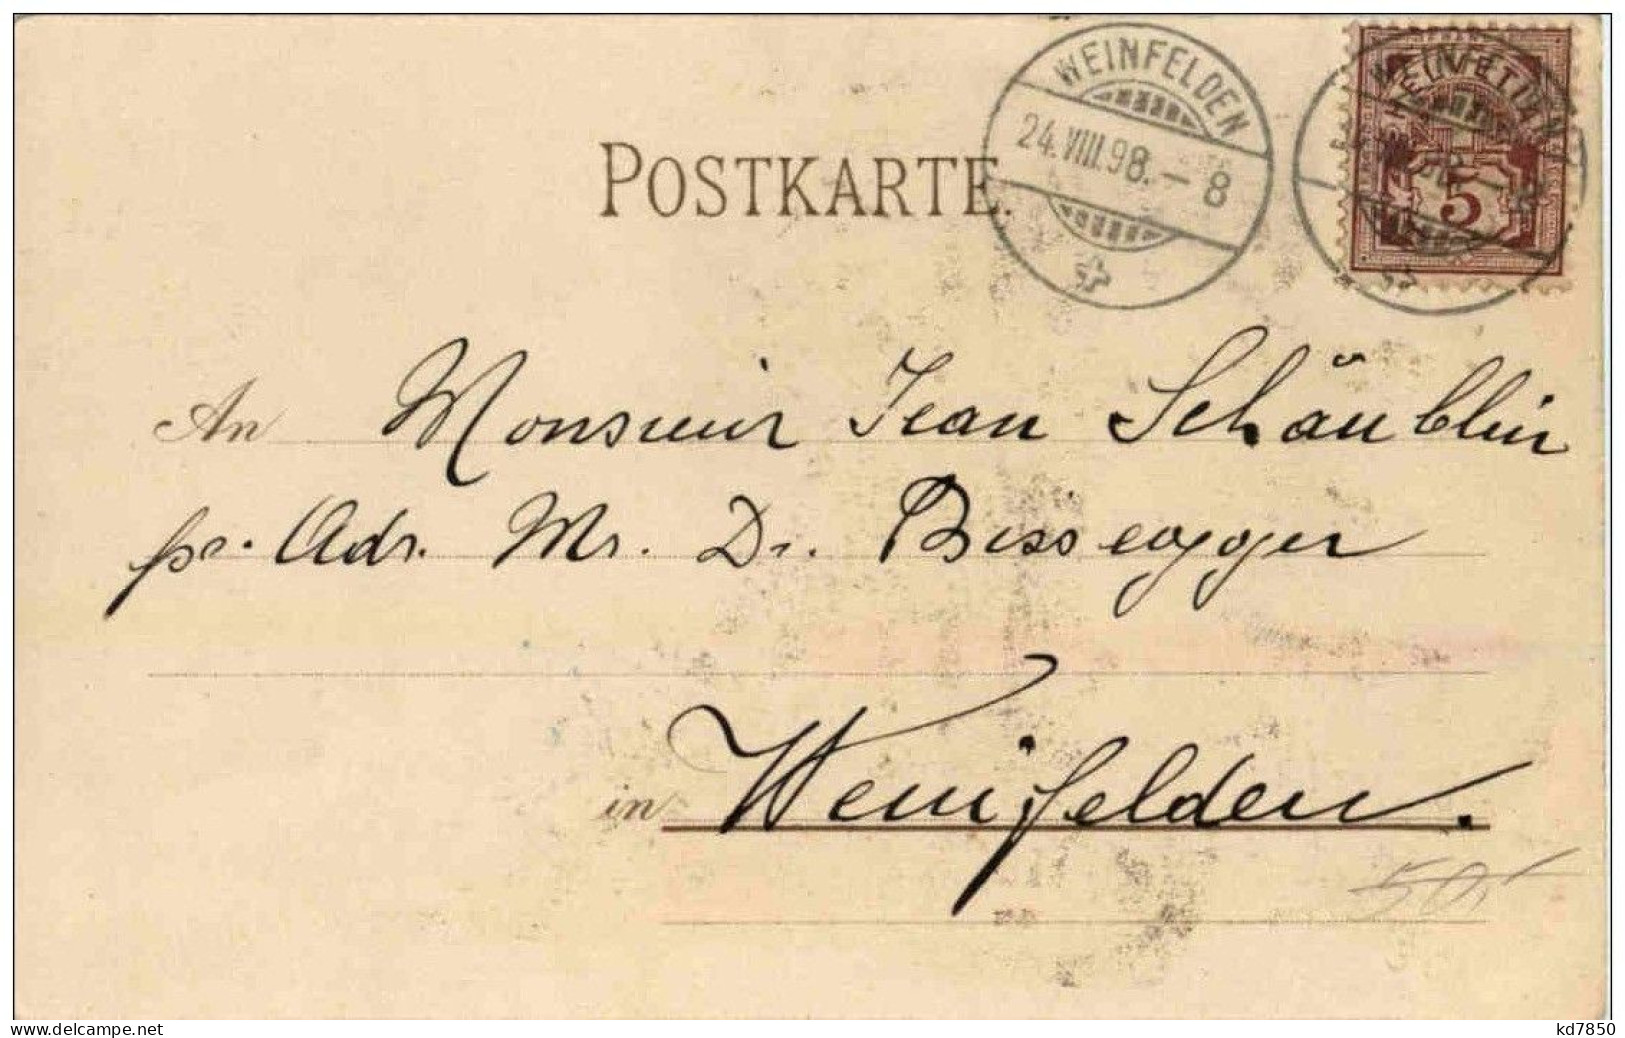 WEINFELDEN
24.VIII.98.-8
WEINFELDEN
5
POSTKARTE.
An Monsieur Jean Schäublin
pr. Adr. Mr. Dr. Bissegger
in Weinfelden.
50,-
www.delcampe.net
kd7850